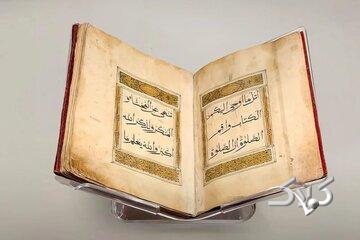 اتل ما اوحي اليك من
الكتاب واقم
الصلوة ان الصلوة
تنهى عن الفحشاء و
المنكر ولذكر الله
اكبر والله يعلم ما